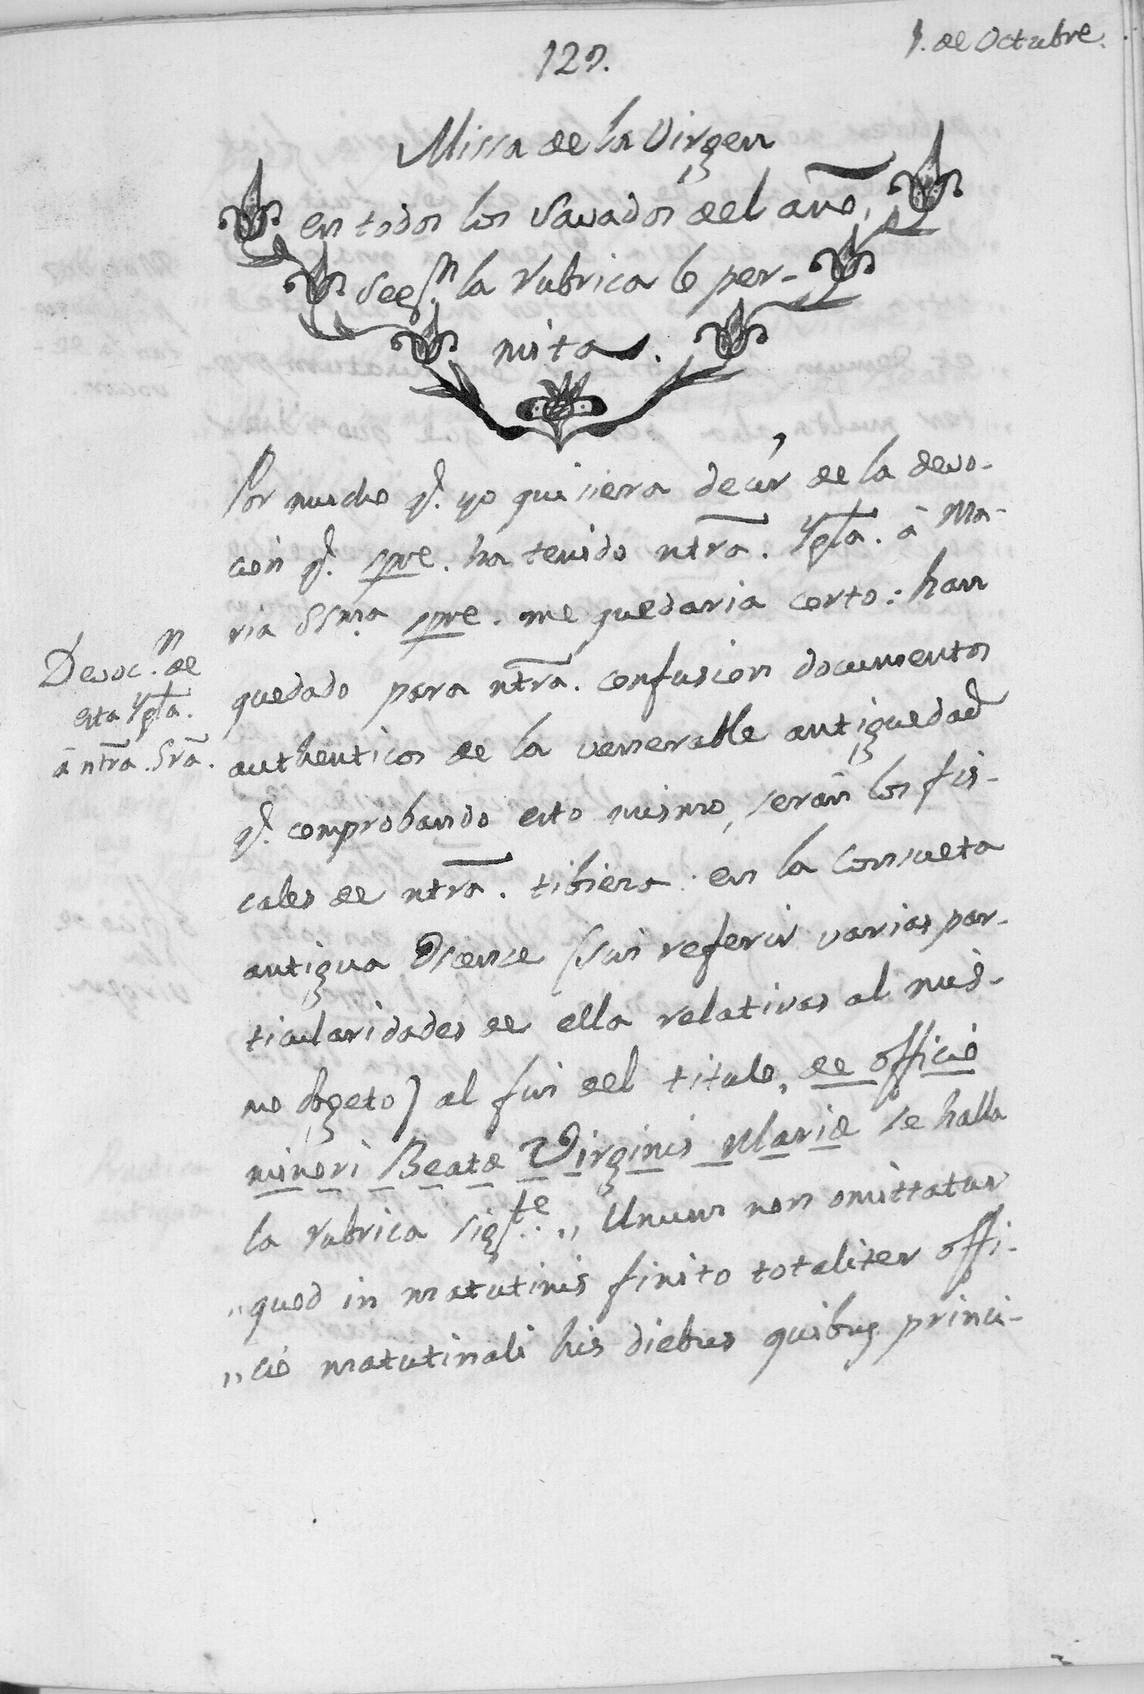 1. de Octubre.
127.
Missa de la Virgen
en todos los Savados del año,
seg.n la rubrica lo per-
mita.
Por mucho q. yo quisiera decir de la devo-
cion q. spre. ha tenido ntra. Ygla. á Ma-
ria SSma. spre. me quedaria corto: han
quedado para ntra. confusion documentos
authenticos de la venerable antiguedad
q. comprobando esto mismo, serán los fis-
cales de ntra. tibieza: en la Consueta
antigua Oscense (sin referir varias par-
ticularidades de ella relativas al mis-
mo obgeto) al fin del titulo, de officio
minori Beatæ Virginis Mariæ se halla
la rubrica sig.te „ Unum non omittatur
„ quod in matutinis finito totaliter offi-
„ cio matutinali his diebus quibus princi-
Devoc.n de
esta Ygla.
á ntra. Sra.